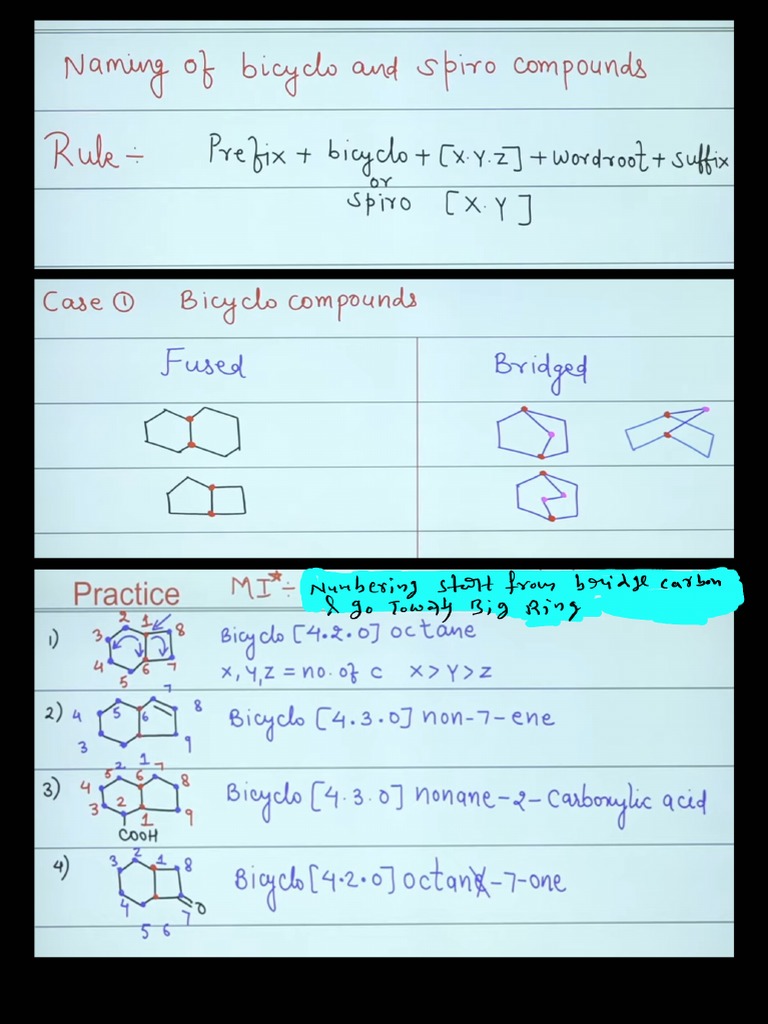 Naming of bicyclo and spiro compounds
Rule :- Prefix + bicyclo + [X.Y.Z] + wordroot + suffix
or
spiro [X.Y]
Case ① Bicyclo compounds
Fused Bridged
Practice MI* :- Numbering start from bridge carbon
& go Towards Big Ring
1) 1 2 3 4 5 6 7 8 Bicyclo [4.2.0] octane
x, y, z = no. of c x > y > z
2) 1 2 3 4 5 6 7 8 9 Bicyclo [4.3.0] non-7-ene
3) 1 2 3 4 5 6 7 8 9 Bicyclo [4.3.0] nonane-2-Carboxylic acid
COOH
4) 1 2 3 4 5 6 7 8 O Bicyclo [4.2.0] octane-7-one